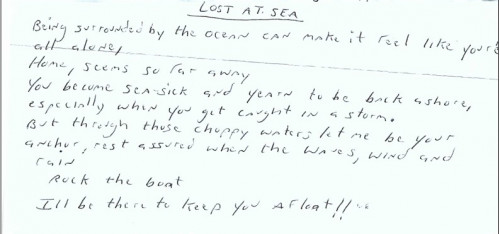 LOST AT SEA
Being surrounded by the ocean can make it feel like you're
all alone,
Home, seems so far away
You become sea-sick and yearn to be back ashore,
especially when you get caught in a storm.
But through those choppy waters let me be your
anchor, rest assured when the waves, wind and
rain
Rock the boat
Ill be there to keep you afloat!!